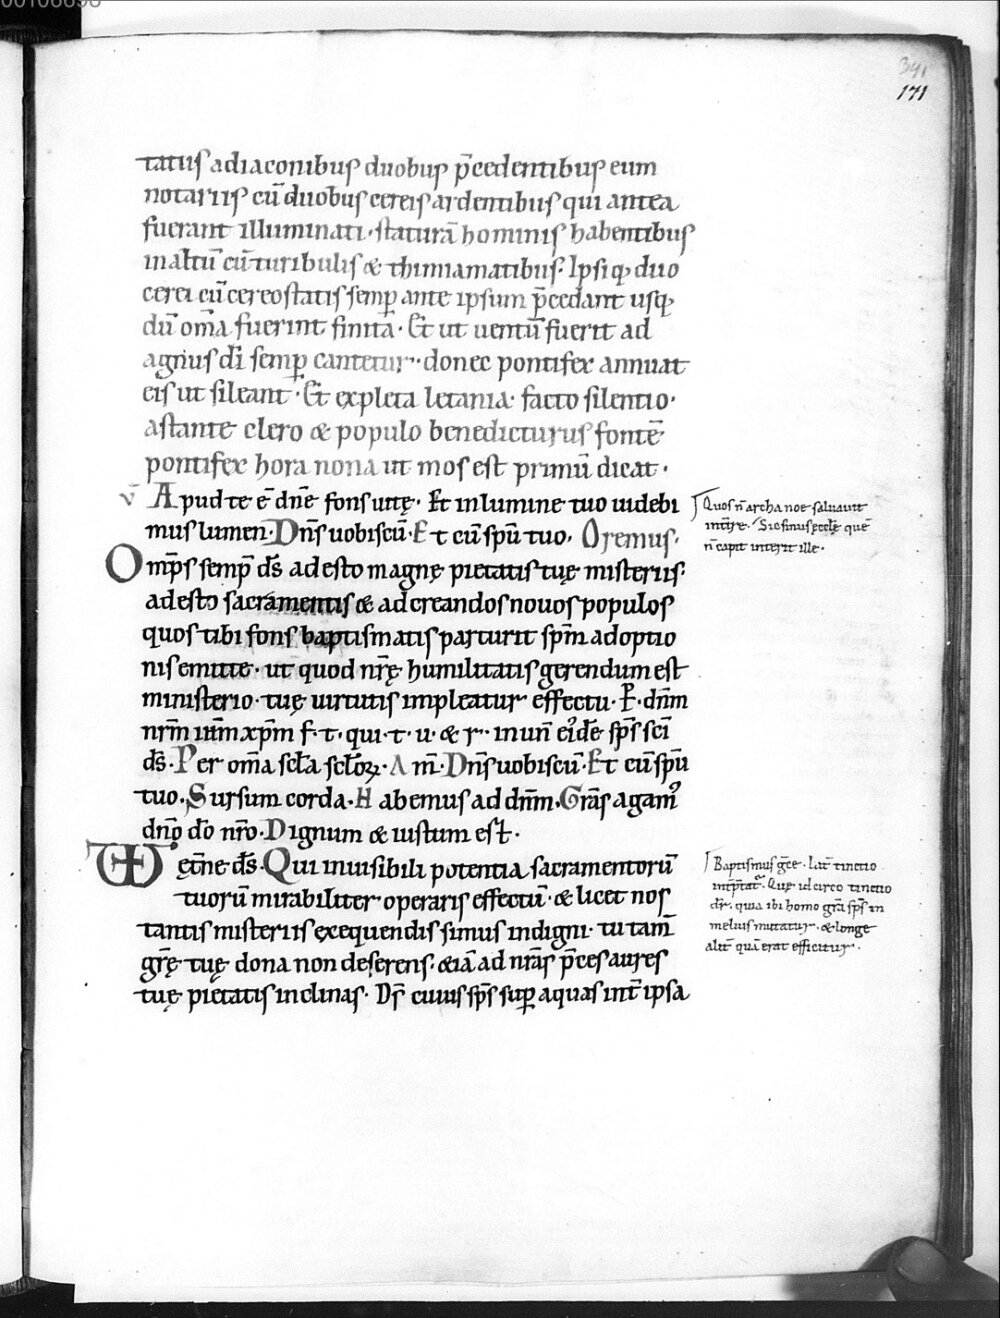 00106698
341
171
tatus adiaconibus duobus p̄cedentibus eum
notariis cū duobus cereis ardentibus qui antea
fuerant illuminati · staturā hominis habentibus
inaltū cū turibulis & thimiamatibus. Ipsiq; duo
cerei cū cereostatis semp̄ ante ipsum p̄cedant usq;
dū om̄a fuerint finita · Et ut uentū fuerit ad
agnus dī semp̄ cantetur · donec pontifex annuat
eis ut sileant · Et expleta letania · facto silentio ·
astante clero & populo benedicturus fontē
pontifex hora nona ut mos est primū dicat ·
v̄ Apud te ē dn̄e fons uitę · Et in lumine tuo uidebi
mus lumen · Dn̄s uobiscū · Et cū sp̄u tuo · Oremus ·
Omp̄s semp̄ ds̄ adesto magnę pietatis tuę misteriis ·
adesto sacramentis & ad creandos nouos populos
quos tibi fons baptismatis parturit sp̄m adoptio
nis emitte · ut quod nr̄ę humilitatis gerendum est
ministerio · tuę uirtutis impleatur effectu · P̄ · dn̄m
nr̄m iħm xp̄m f · t · qui · t · u · & r · in un̄ eiꝰdē sp̄s sc̄i
ds̄ · Per om̄a sc̄la sc̄loꝝ · Am̄ · Dn̄s uobiscū · Et cū sp̄u
tuo · Sursum corda · Habemus ad dn̄m · Grās agamꝰ
dn̄o dō nr̄o · Dignum & iustum est ·
VD ęt̄ne ds̄ · Qui inuisibili potentia sacramentorū
tuorū mirabiliter operaris effectū · & licet nos
tantis misteriis exequendis simus indigni · tu tam̄
gr̄ę tuę dona non deserens · &iā ad nr̄as p̄ces aures
tuę pietatis inclinas · Ds̄ cuius sp̄s sup̄ aquas int̄ ipsa
Quos n̄ archa noe saluauit
int̄ire · Sic simus ęcclę quē
n̄ capit interit ille ·
Baptismus gr̄ce · latī tinctio
int̄p̄tat᷑ · Quę idcirco tinctio
dr̄ · quia ibi homo grā sp̄s in
melius mutatur · & longe
alit̄ quā erat efficitur ·